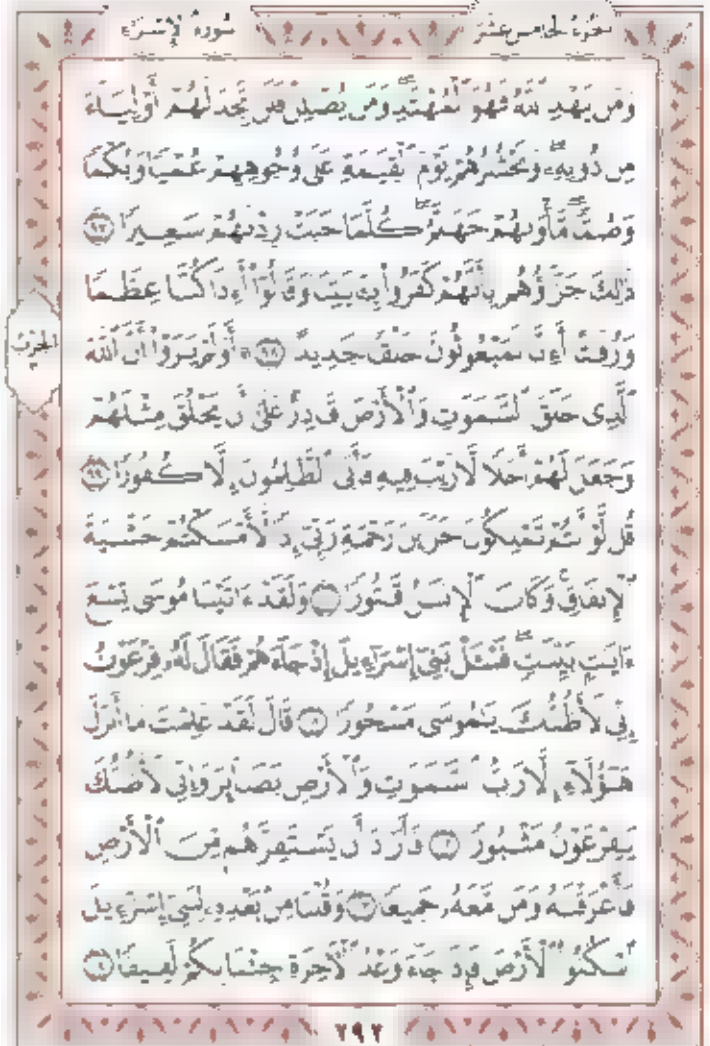 الجزء الخامس عشر سورة الإسراء
وَمَن يَهْدِ ٱللَّهُ فَهُوَ ٱلْمُهْتَدِ وَمَن يُضْلِلْ فَلَن تَجِدَ لَهُمْ أَوْلِيَآءَ
مِن دُونِهِۦ وَنَحْشُرُهُمْ يَوْمَ ٱلْقِيَـٰمَةِ عَلَىٰ وُجُوهِهِمْ عُمْيًا وَبُكْمًا
وَصُمًّا مَّأْوَىٰهُمْ جَهَنَّمُ كُلَّمَا خَبَتْ زِدْنَـٰهُمْ سَعِيرًا ٩٧
ذَٰلِكَ جَزَآؤُهُم بِأَنَّهُمْ كَفَرُوا۟ بِـَٔايَـٰتِنَا وَقَالُوٓا۟ أَءِذَا كُنَّا عِظَـٰمًا
وَرُفَـٰتًا أَءِنَّا لَمَبْعُوثُونَ خَلْقًا جَدِيدًا ٩٨ ۞ أَوَلَمْ يَرَوْا۟ أَنَّ ٱللَّهَ
الحزب
ٱلَّذِى خَلَقَ ٱلسَّمَـٰوَٰتِ وَٱلْأَرْضَ قَادِرٌ عَلَىٰٓ أَن يَخْلُقَ مِثْلَهُمْ
وَجَعَلَ لَهُمْ أَجَلًا لَّا رَيْبَ فِيهِ فَأَبَى ٱلظَّـٰلِمُونَ إِلَّا كُفُورًا ٩٩
قُل لَّوْ أَنتُمْ تَمْلِكُونَ خَزَآئِنَ رَحْمَةِ رَبِّىٓ إِذًا لَّأَمْسَكْتُمْ خَشْيَةَ
ٱلْإِنفَاقِ وَكَانَ ٱلْإِنسَـٰنُ قَتُورًا ١٠٠ وَلَقَدْ ءَاتَيْنَا مُوسَىٰ تِسْعَ
ءَايَـٰتٍۭ بَيِّنَـٰتٍ فَسْـَٔلْ بَنِىٓ إِسْرَٰٓءِيلَ إِذْ جَآءَهُمْ فَقَالَ لَهُۥ فِرْعَوْنُ
إِنِّى لَأَظُنُّكَ يَـٰمُوسَىٰ مَسْحُورًا ١٠١ قَالَ لَقَدْ عَلِمْتَ مَآ أَنزَلَ
هَـٰٓؤُلَآءِ إِلَّا رَبُّ ٱلسَّمَـٰوَٰتِ وَٱلْأَرْضِ بَصَآئِرَ وَإِنِّى لَأَظُنُّكَ
يَـٰفِرْعَوْنُ مَثْبُورًا ١٠٢ فَأَرَادَ أَن يَسْتَفِزَّهُم مِّنَ ٱلْأَرْضِ
فَأَغْرَقْنَـٰهُ وَمَن مَّعَهُۥ جَمِيعًا ١٠٣ وَقُلْنَا مِنۢ بَعْدِهِۦ لِبَنِىٓ إِسْرَٰٓءِيلَ
ٱسْكُنُوا۟ ٱلْأَرْضَ فَإِذَا جَآءَ وَعْدُ ٱلْـَٔاخِرَةِ جِئْنَا بِكُمْ لَفِيفًا ١٠٤
٢٩٢